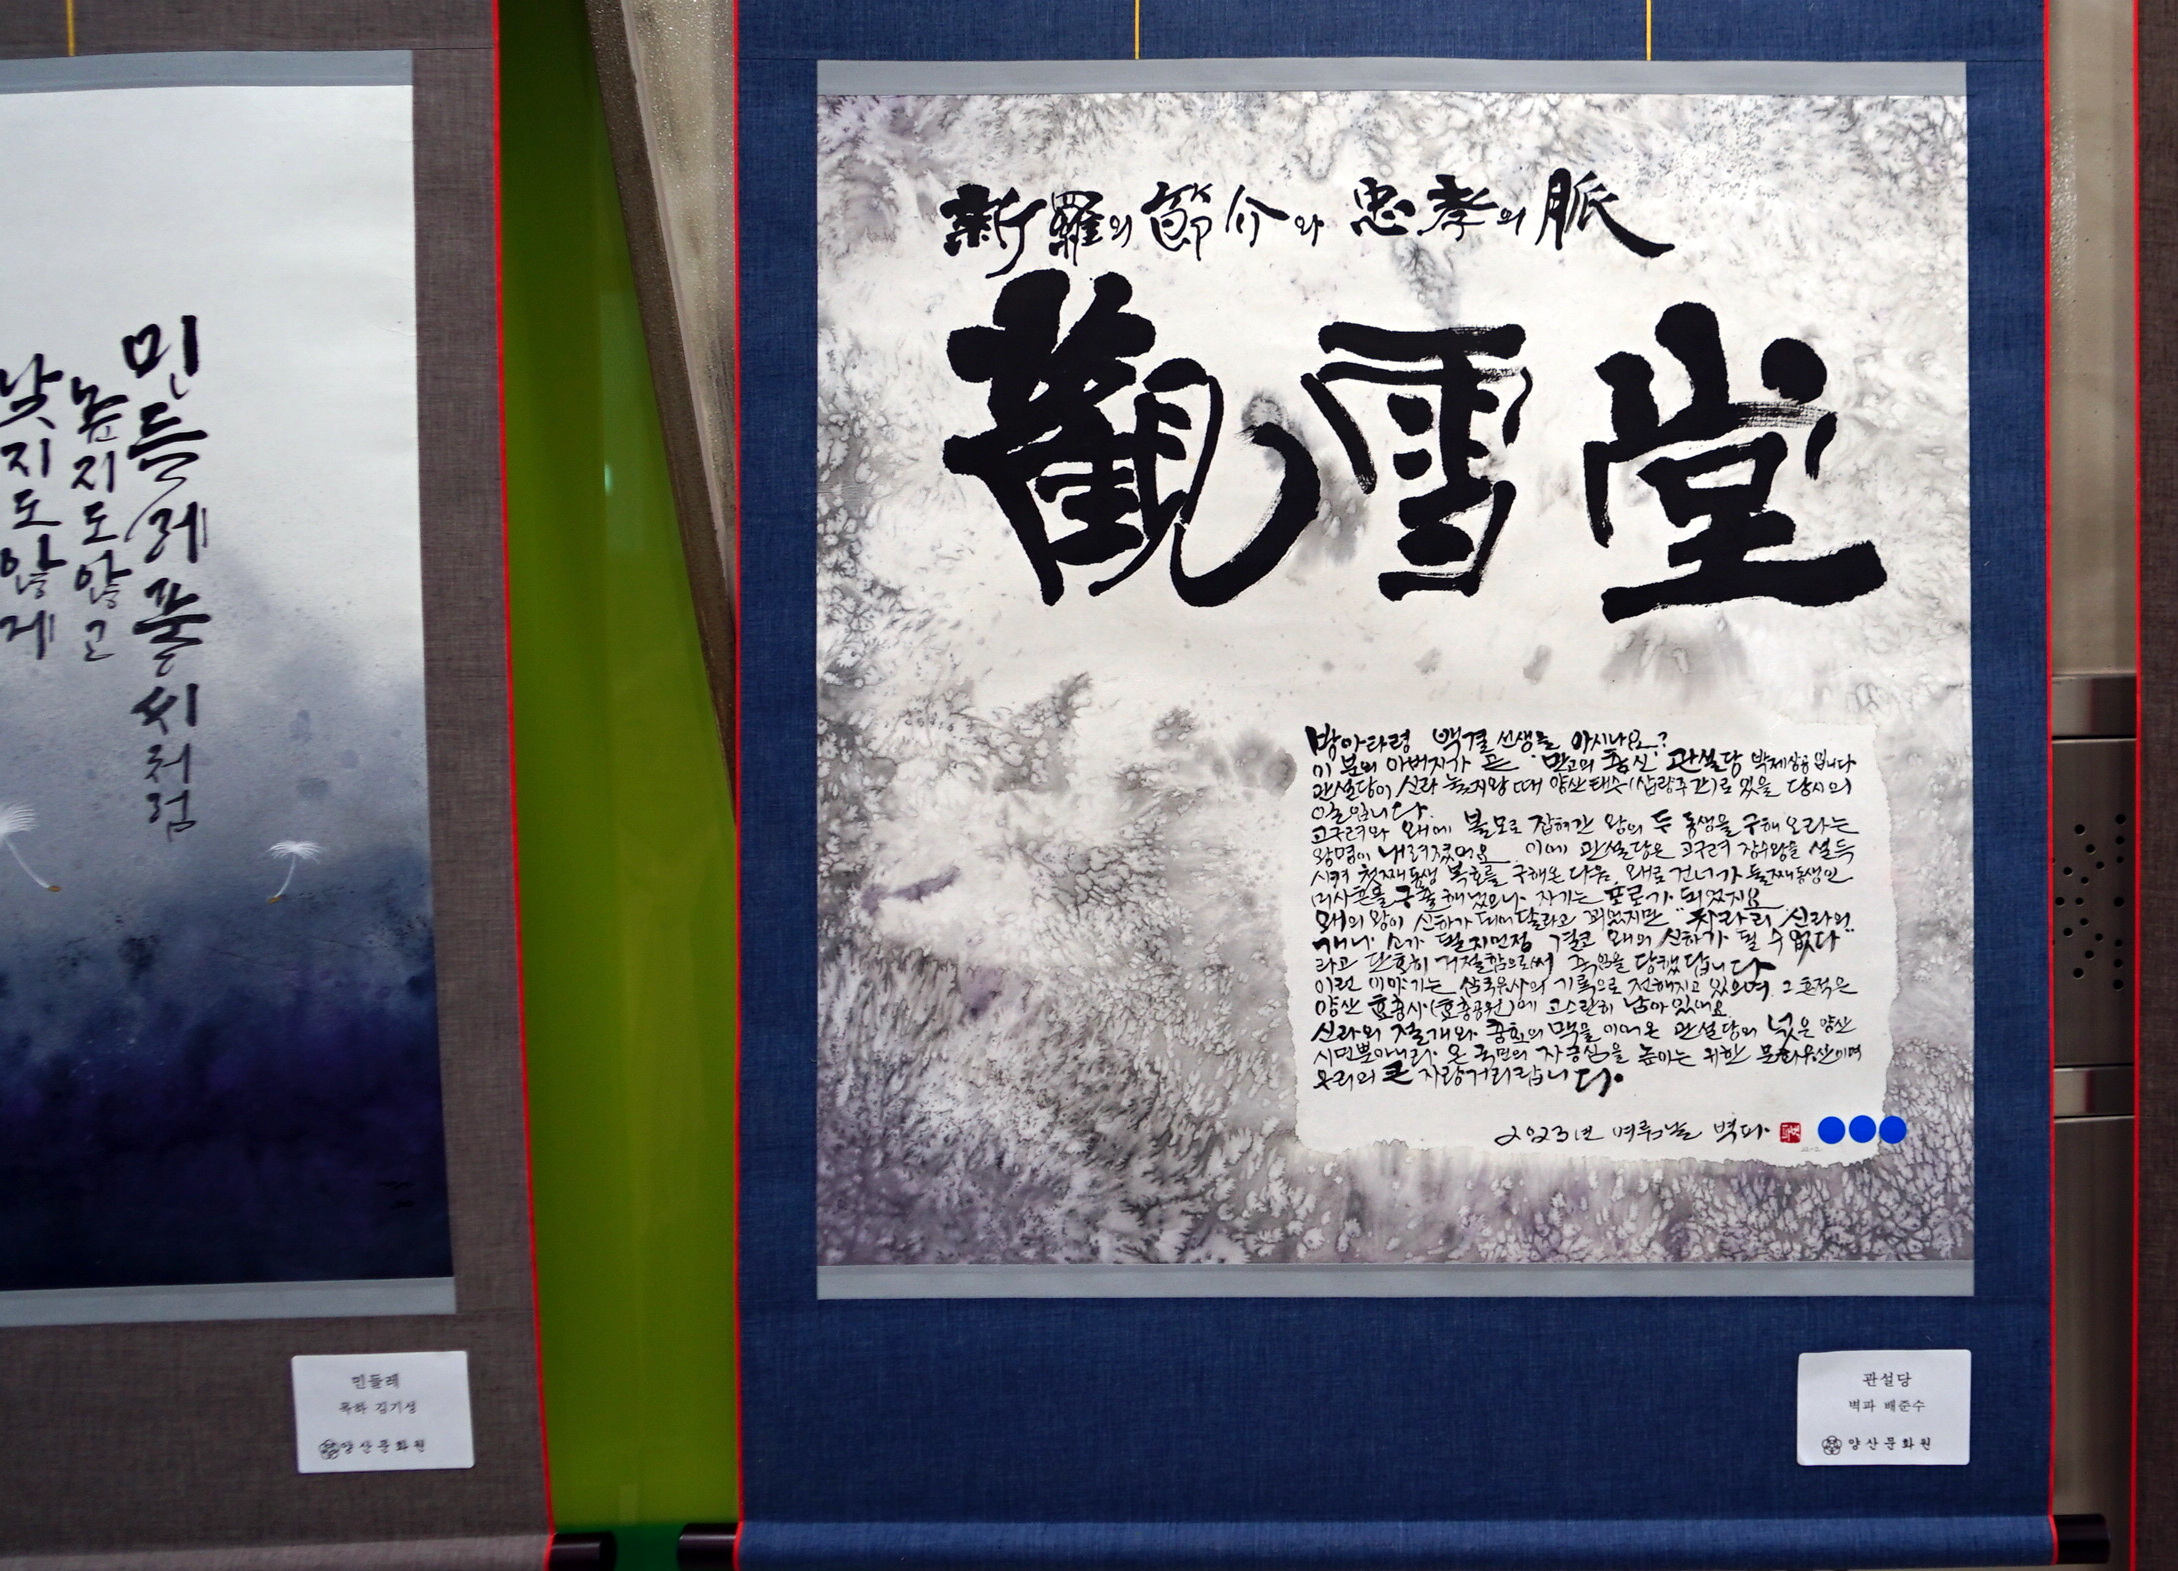 민들레풀씨처럼
높지도않고
낮지도않게
민들레
김기성
양산문화원
新羅의 節介와 忠孝의 脈
觀雪堂
방아타령 백결선생을 아시나요?
이 분의 아버지가 곧 만고의 충신 관설당 박제상공입니다
관설당이 신라 눌지왕 때 양산태수(삽량주간)로 있을 당시의
일입니다.
고구려와 왜에 볼모로 잡혀간 왕의 두 동생을 구해 오라는
왕명이 내려졌어요 이에 관설당은 고구려 장수왕을 설득
시켜 첫째동생 복호를 구해온 다음, 왜로 건너가 둘째동생인
미사흔을 구출해냈으나 자기는 포로가 되었지요
왜의 왕이 신하가 되어달라고 꾀었지만 "차라리 신라의
개나 소가 될지언정 결코 왜의 신하가 될 수 없다"
라고 단호히 거절함으로써 죽임을 당했답니다
이런 이야기는 삼국유사의 기록으로 전해지고 있으며 그 흔적은
양산 효충사(효충공원)에 고스란히 남아있어요
신라의 절개와 충효의 맥을 이어온 관설당의 넋은 양산
시민뿐아니라 온 국민의 자긍심을 높이는 귀한 문화유산이며
우리의 큰 자랑거리랍니다.
2023년 여름날 벽파
관설당
벽파 배준수
양산문화원